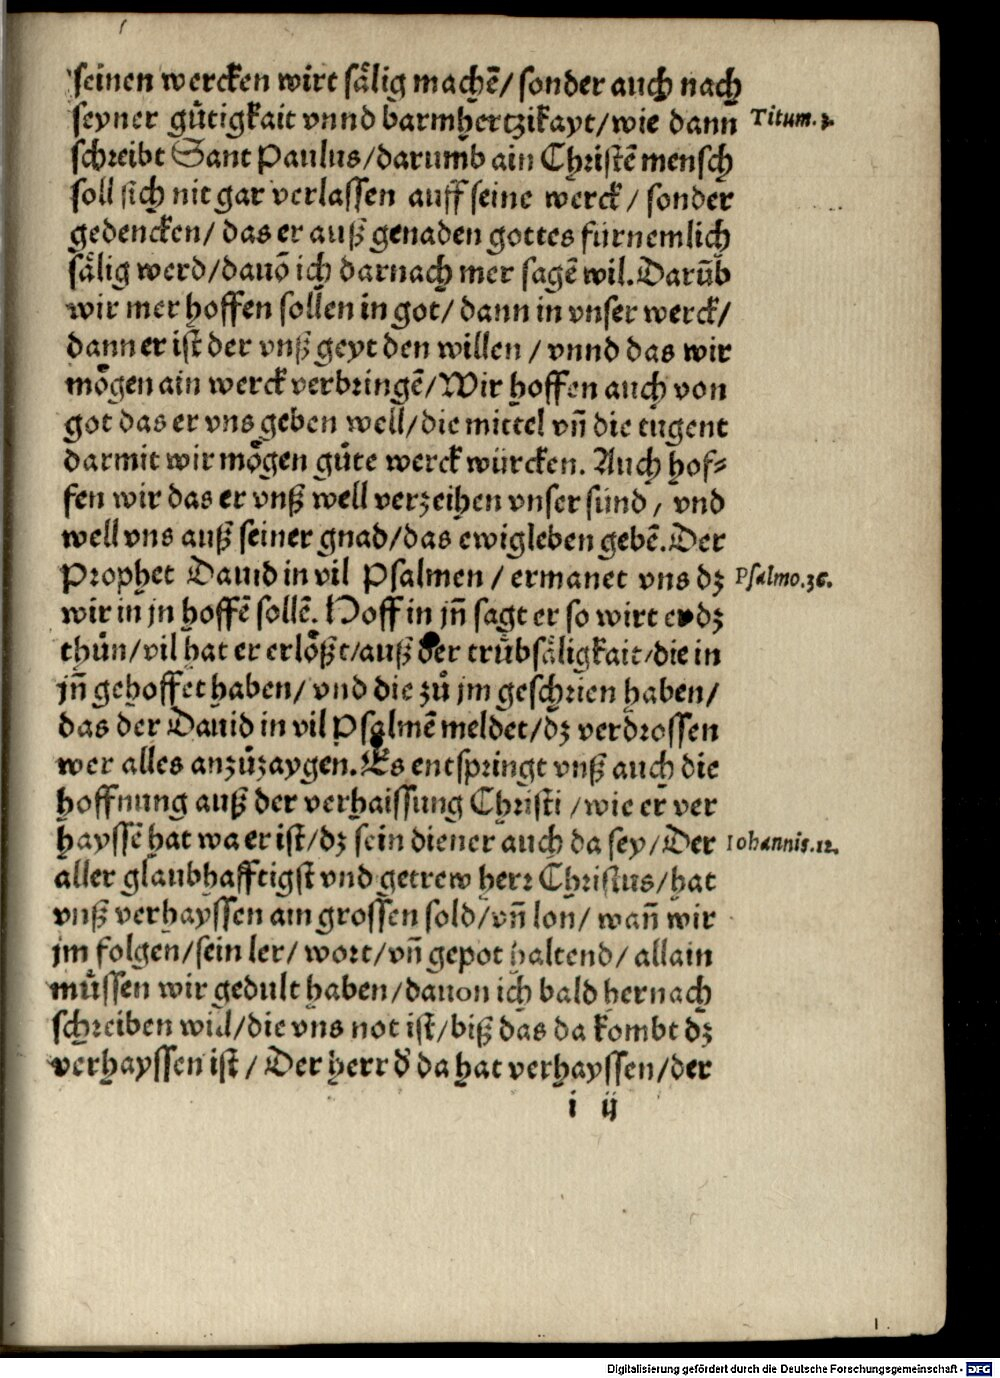 seinen wercken wirt sälig machē/ sonder auch nach
seyner gůtigkait vnnd barmhertzikayt/wie dann Titum. 3.
schreibt Sant Paulus/darumb ain Christē mensch
soll sich nit gar verlassen auff seine werck/ sonder
gedencken/ das er auß genaden gottes fürnemlich
sälig werd/dauō ich darnach mer sagē wil.Darūb
wir mer hoffen sollen in got/ dann in vnser werck/
dann er ist der vnß geyt den willen / vnnd das wir
mögen ain werck verbringē/Wir hoffen auch von
got das er vns geben well/die mittel vñ die tugent
darmit wir mögen gůte werck würcken. Auch hof⸗
fen wir das er vnß well verzeihen vnser sünd / vnd
well vns auß seiner gnad/das ewigleben gebē.Der
Prophet Dauid in vil Psalmen / ermanet vns dz Psalmo.36.
wir in jn hoffē sollē. Hoff in jñ sagt er so wirt er dz
thůn/vil hat er erlößt/auß der trůbsäligkait/die in
jñ gehoffet haben/ vnd die zů jm geschrien haben/
das der Dauid in vil Psalmē meldet/dz verdrossen
wer alles anzůzaygen.Es entspringt vnß auch die
hoffnung auß der verhaissung Christi /wie er ver
hayssē hat wa er ist/dz sein diener auch da sey/Der Iohannis.12.
aller glaubhafftigst vnd getrew herr Christus/hat
vnß verhayssen ain grossen sold/vñ lon/ wañ wir
jm folgen/sein ler/ wort/vñ gepot haltend/ allain
můssen wir gedult haben/dauon ich bald hernach
schreiben will/die vns not ist/biß das da kombt dz
verhayssen ist / Der herr d̾ da hat verhayssen/der
i ij
Digitalisierung gefördert durch die Deutsche Forschungsgemeinschaft - DFG